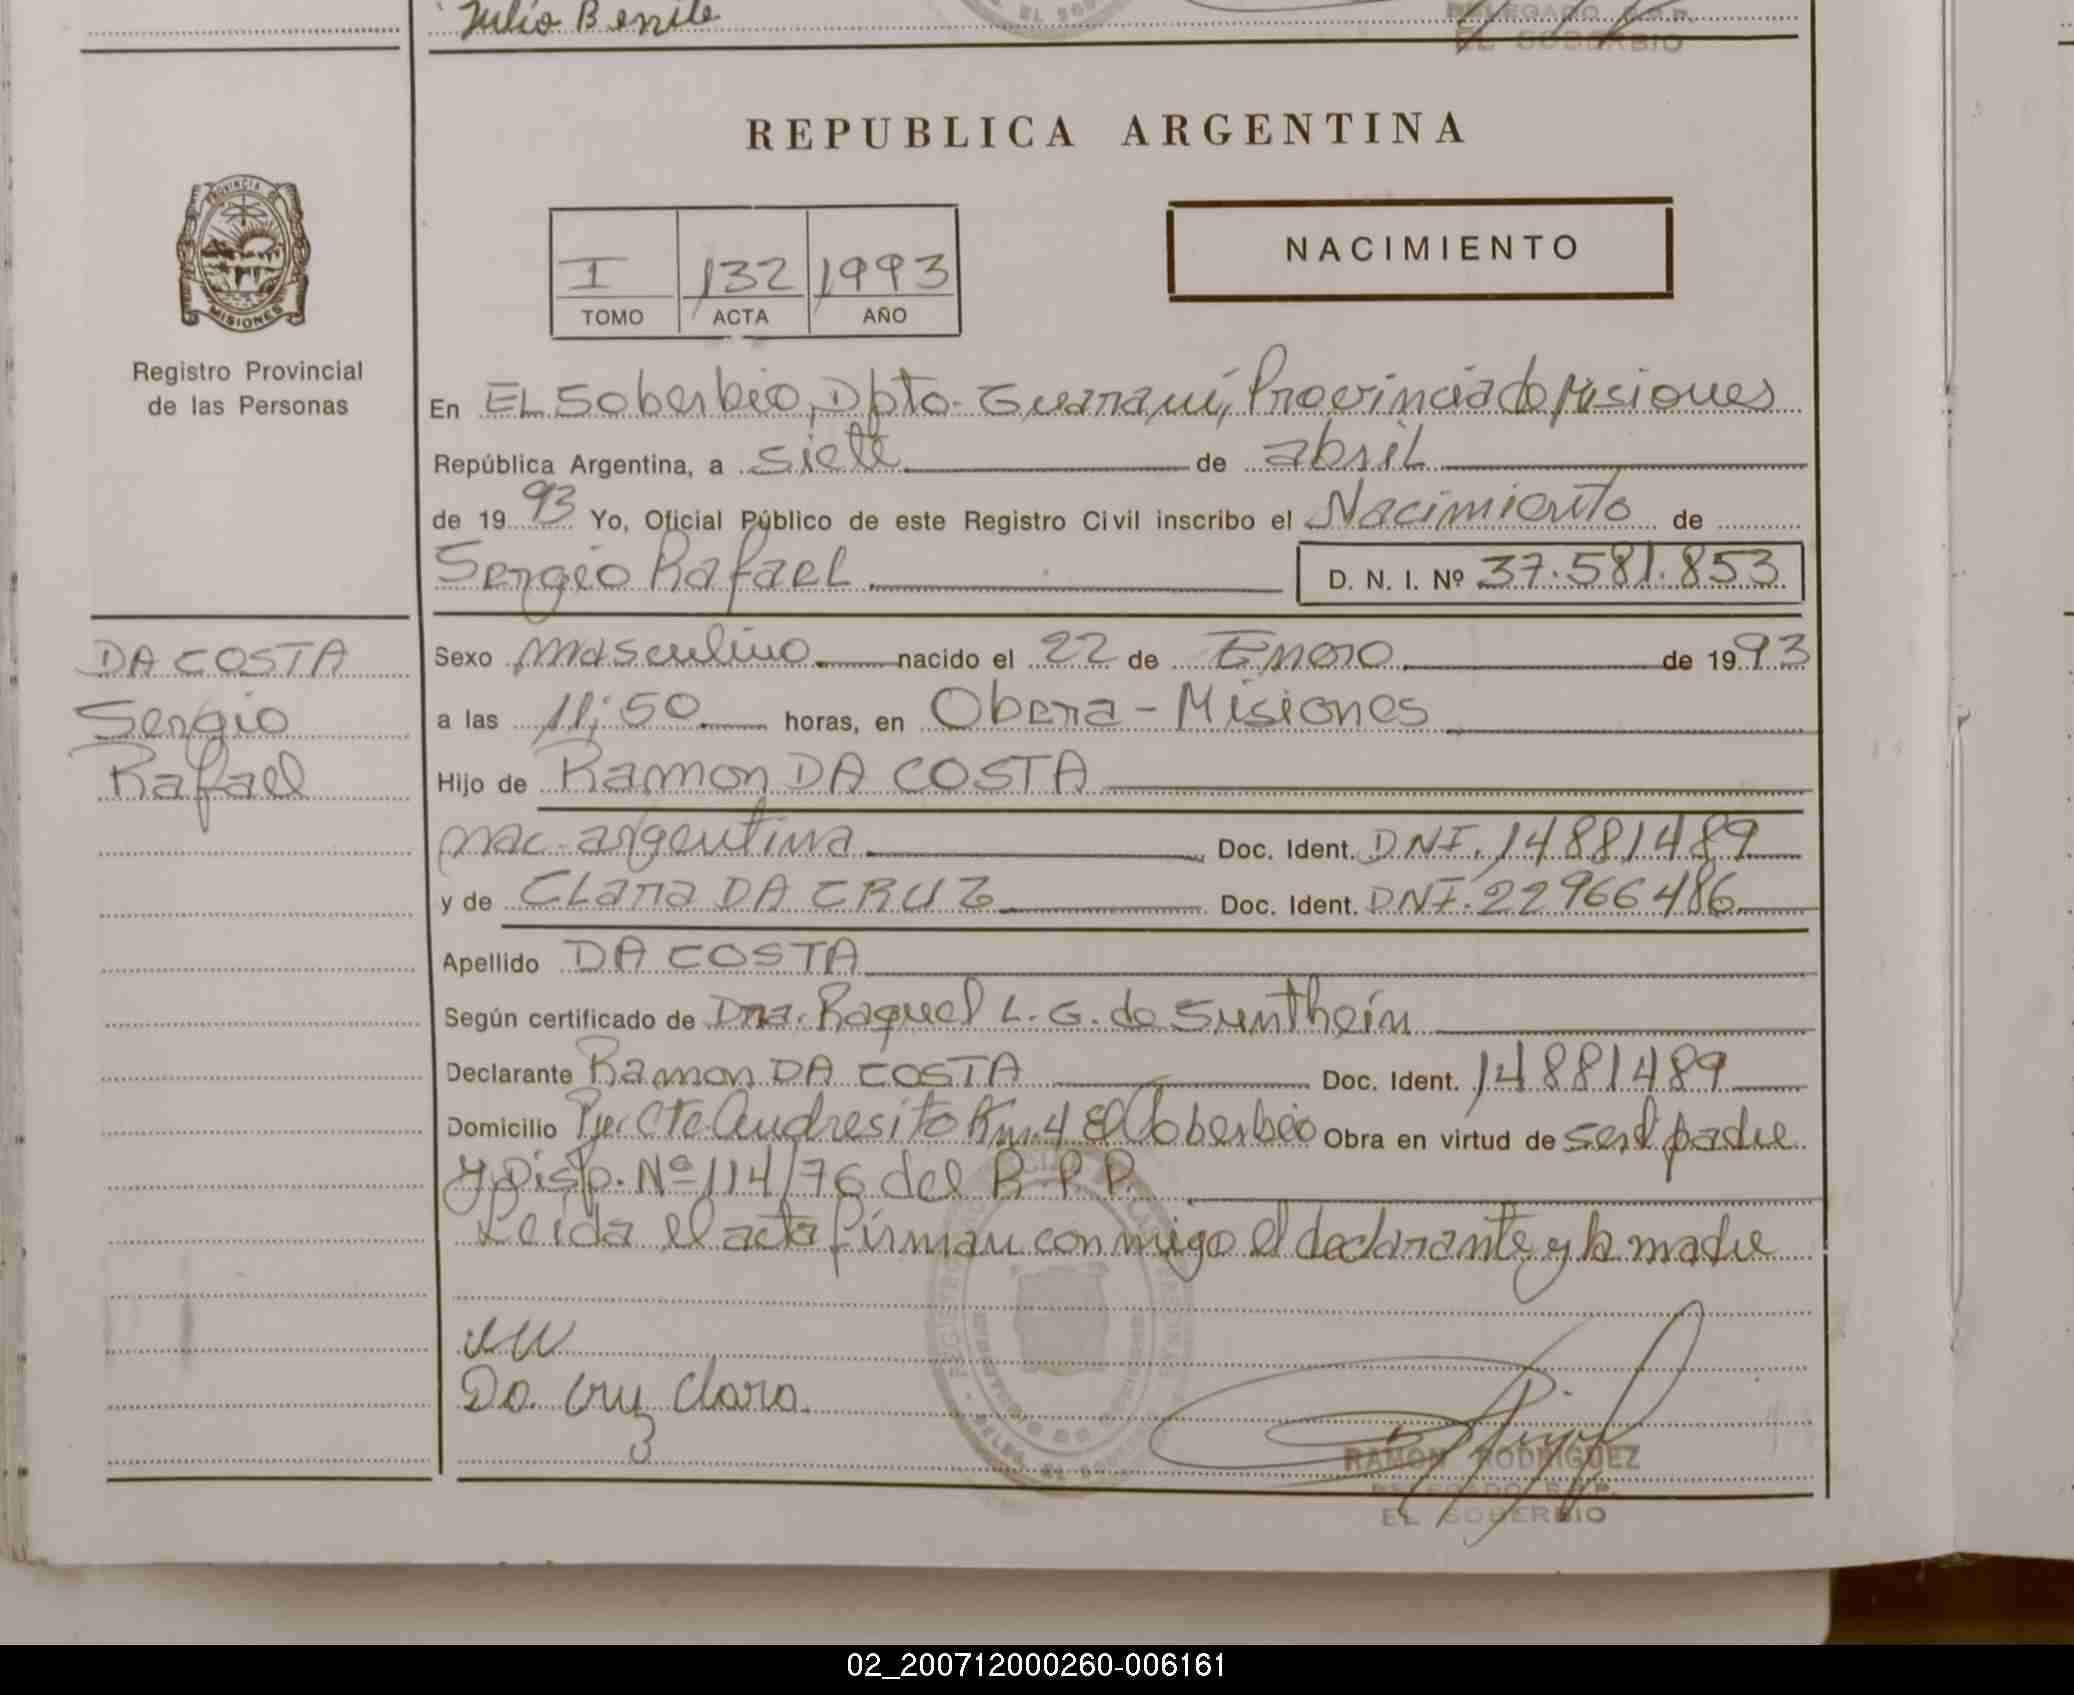 Julio Benite
DELEGADO R.P.P.
EL SOBERBIO
REPUBLICA ARGENTINA
PROVINCIA DE
MISIONES
Registro Provincial
de las Personas
NACIMIENTO
I 132 1993
TOMO ACTA AÑO
En EL Soberbio, Dpto. Guaraní, Provincia de Misiones
República Argentina, a siete de abril
de 1993 Yo, Oficial Público de este Registro Civil inscribo el Nacimiento de
Sergio Rafael D. N. I. Nº 37.581.853
DA COSTA
Sergio
Rafael
Sexo masculino nacido el 22 de Enero de 1993
a las 11:50 horas, en Obera - Misiones
Hijo de Ramon DA COSTA
nac. argentina Doc. Ident. DNI. 14881489
y de Clara DA CRUZ Doc. Ident. DNI. 22966486
Apellido DA COSTA
Según certificado de Dra. Raquel L. G. de Sunthein
Declarante Ramon DA COSTA Doc. Ident. 14881489
Domicilio Pje. Cte. Andresito Km. 4 El Soberbio Obra en virtud de ser el padre
y Disp. Nº 114/76 del R.P.P.
Leida el acta firman conmigo el declarante y la madre
Da Cruz Clara
RAMON RODRIGUEZ
DELEGADO R.P.P.
EL SOBERBIO
02_200712000260-006161